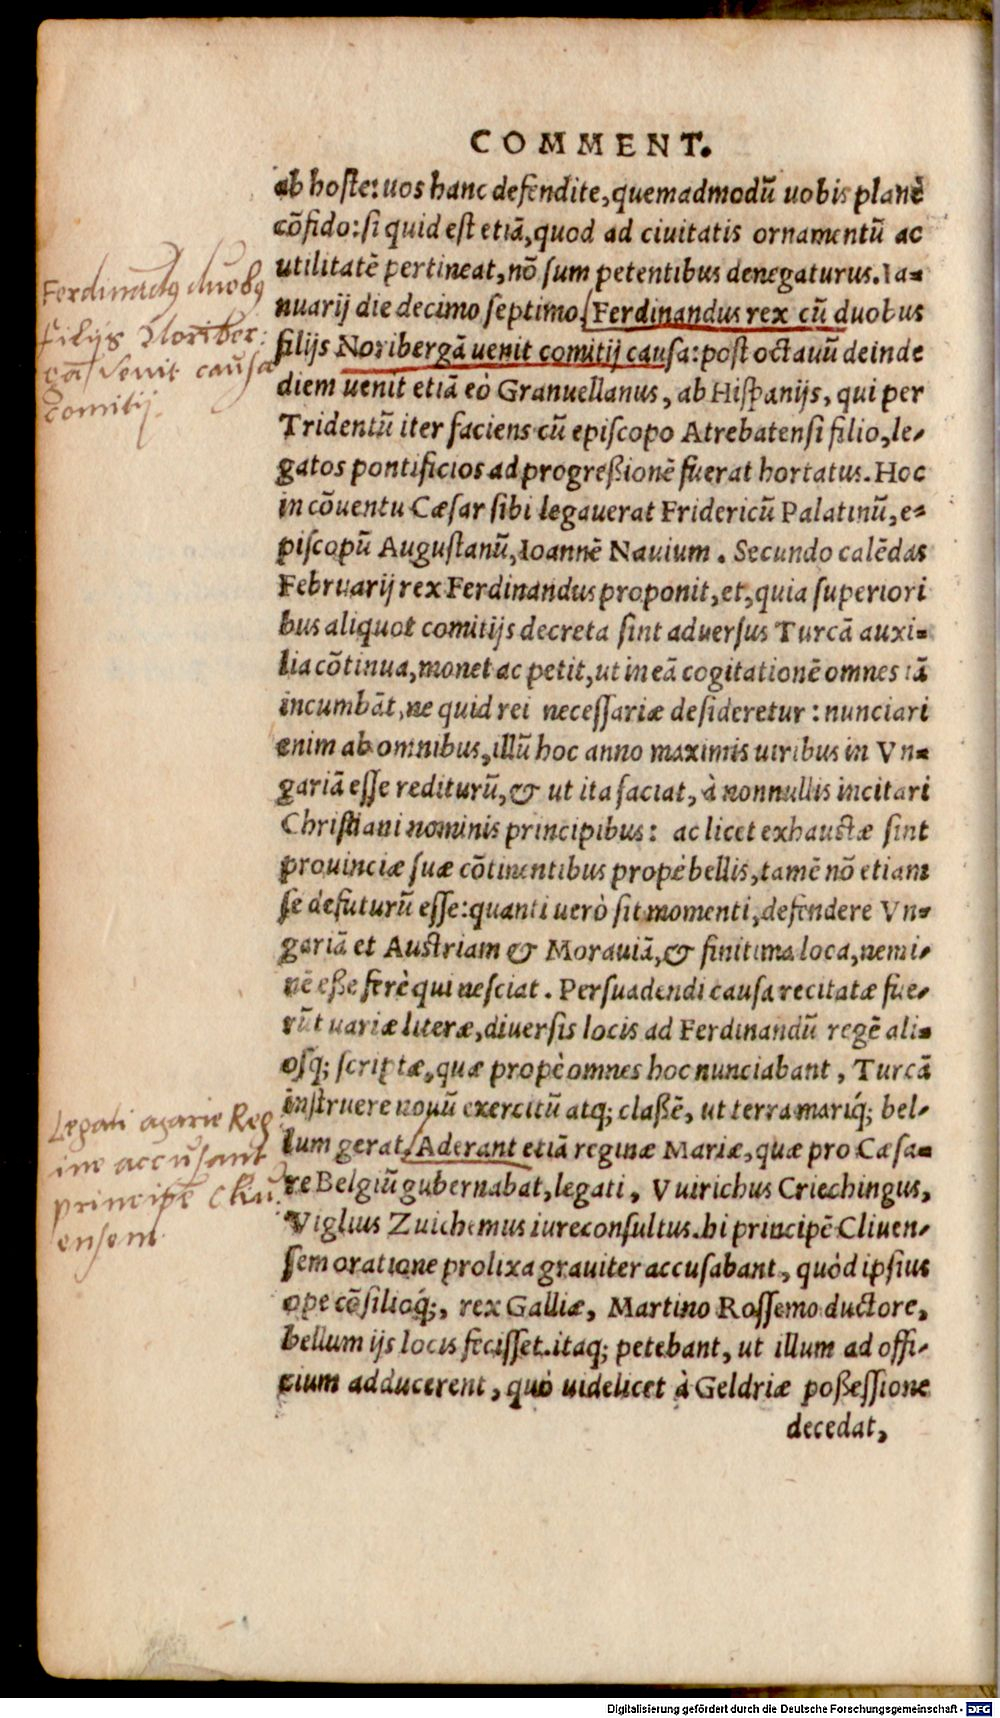 COMMENT.
ab hoste: uos hanc defendite, quemadmodũ uobis planè
cõfido: si quid est etiã, quod ad ciuitatis ornamentũ ac
utilitatẽ pertineat, nõ sum petentibus denegaturus. Ia-
nuarij die decimo septimo, Ferdinandus rex cũ duobus
filijs Noribergã uenit comitij causa: post octauũ deinde
diem uenit etiã eò Granuellanus, ab Hispanijs, qui per
Tridentũ iter faciens cũ episcopo Atrebatensi filio, le-
gatos pontificios ad progreßionẽ fuerat hortatus. Hoc
in cõuentu Cæsar sibi legauerat Fridericũ Palatinũ, e-
piscopũ Augustanũ, Ioannẽ Nauium. Secundo calẽdas
Februarij rex Ferdinandus proponit, et, quia superiori
bus aliquot comitijs decreta sint aduersus Turcã auxi-
lia cõtinua, monet ac petit, ut in eã cogitationẽ omnes iã
incumbãt, ne quid rei necessariæ desideretur: nunciari
enim ab omnibus, illũ hoc anno maximis uiribus in Vn-
gariã esse rediturũ, & ut ita faciat, à nonnullis incitari
Christiani nominis principibus: ac licet exhaustæ sint
prouinciæ suæ cõtinentibus propè bellis, tamẽ nõ etiam
se defuturũ esse: quanti uerò sit momenti, defendere Vn-
gariã et Austriam & Morauiã, & finitima loca, nemi-
nẽ eße ferè qui nesciat. Persuadendi causa recitatæ fue-
rũt uariæ literæ, diuersis locis ad Ferdinandũ regẽ ali-
osq; scriptæ, quæ propè omnes hoc nunciabant, Turcã
instruere nouũ exercitũ atq; claßẽ, ut terra mariq́; bel-
lum gerat, Aderant etiã reginæ Mariæ, quæ pro Cæsa-
re Belgiũ gubernabat, legati, Vuirichus Criechingus,
Viglius Zuichemus iureconsultus. hi principẽ Cliuen-
sem oratione prolixa grauiter accusabant, quòd ipsius
ope cõsilioq́;, rex Galliæ, Martino Rossemo ductore,
bellum ijs locis fecisset. itaq; petebant, ut illum ad offi-
cium adducerent, quò uidelicet à Geldriæ poßessione
decedat,
Ferdinãdus duobus
filijs Noriber:
gã venit causa
comitij.
Legati Marie Reg
ine accusant
principẽ Cliu
ensem
Digitalisierung gefördert durch die Deutsche Forschungsgemeinschaft - DFG